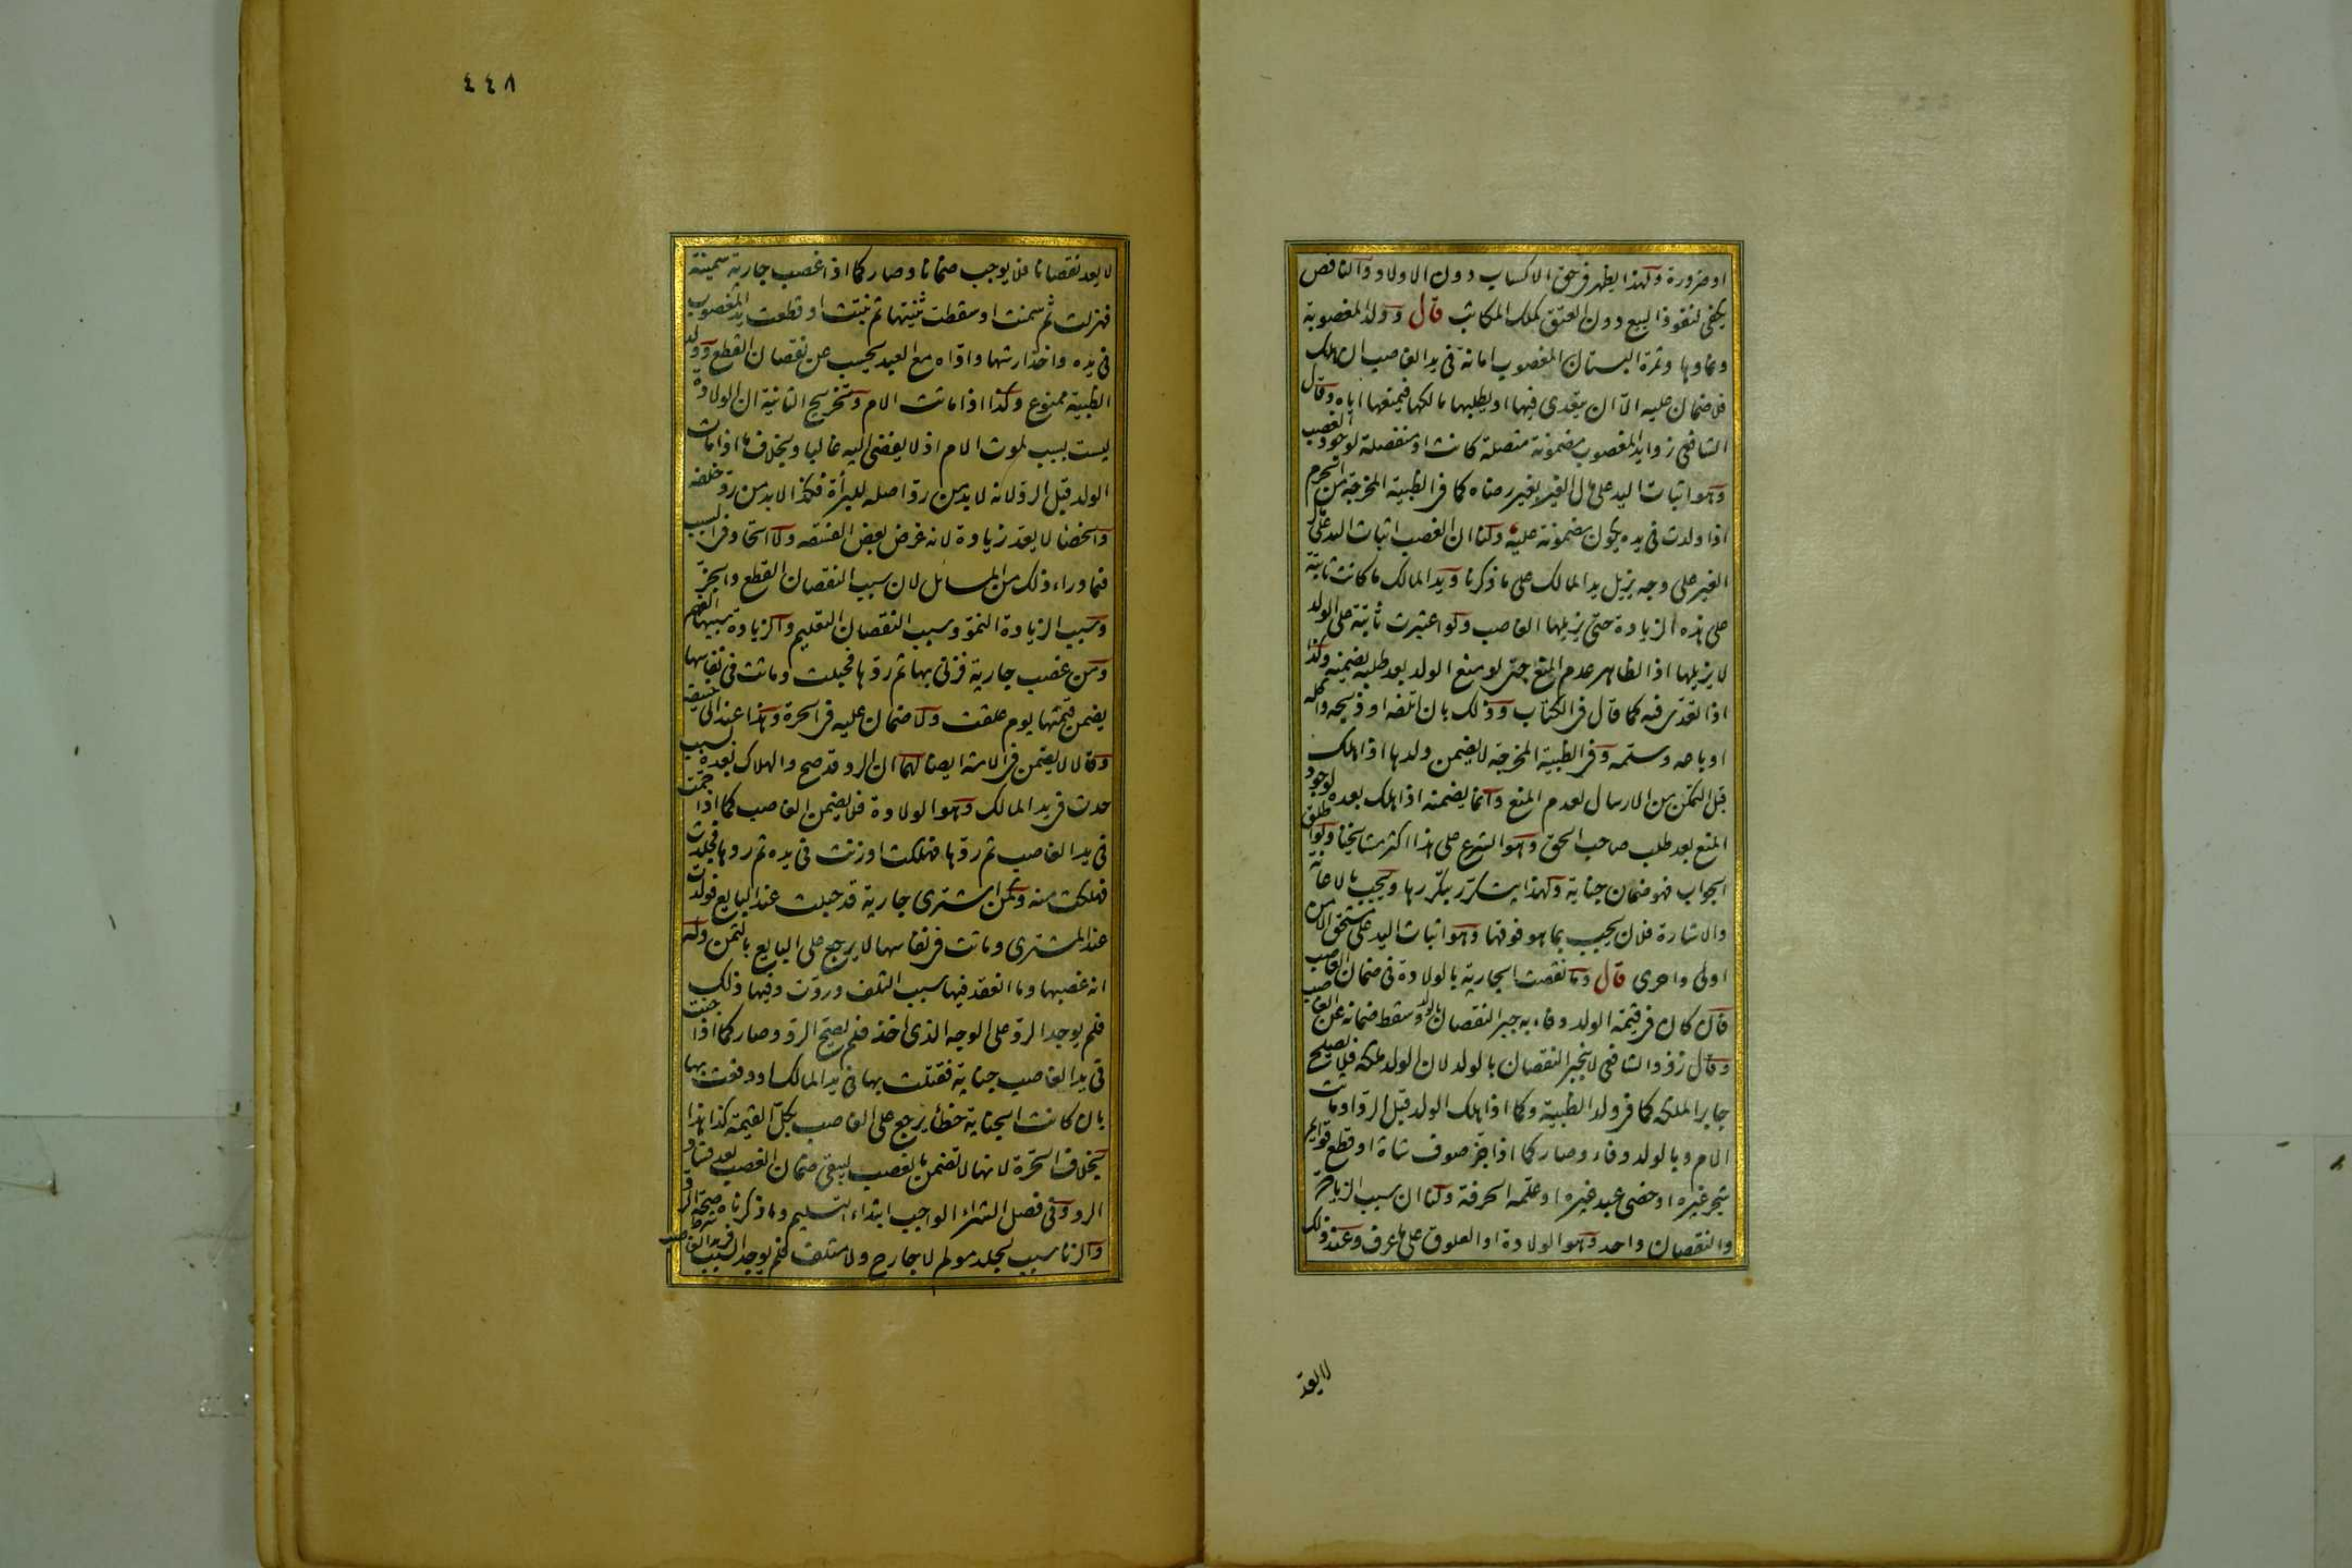 او ضرورة ولهذا يظهر في حق الاكساب دون الاولاد والناقص
يكفى لنفوذ البيع دون العتق كملك المكاتب قال وولد المغصوبة
ونماوها وثمرة البستان المغصوب امانة فى يد الغاصب ان هلك
فلا ضمان عليه الا ان يتعدى فيها او يطلبها مالكها فيمنعها اياه وقال
الشافعى زوايد المغصوب مضمونة متصلة كانت او منفصلة لوجود الغصب
وهو اثبات اليد على مال الغير بغير رضاه كما فى الظبية المخرجة من الحرم
اذا ولدت فى يده يكون مضمونة عليه ولنا ان الغصب اثبات اليد على مال
الغير على وجه يزيل يد المالك على ما ذكرنا ويد المالك ما كانت ثابتة
على هذه الزيادة حتى يزيلها الغاصب ولو اعتبرت ثابتة على الولد
لا يزيلها اذ الظاهر عدم المنع حتى لو منع الولد بعد طلبه يضمنه وكذا
اذا تعدى فيه كما قال فى الكتاب وذلك بان اتلفه او ذبحه واكله
او باعه وسلمه وفى الظبية المخرجة لا يضمن ولدها اذا هلك
قبل التمكن من الارسال لعدم المنع وانما يضمنه اذا هلك بعده لوجود
المنع بعد طلب صاحب الحق وهو الشرع على هذا اكثر مشايخنا ولو اطلق
الجواب فهو ضمان جناية ولهذا يتكرر بتكررها ويجب بالاعانة
والاشارة فلان يجب بما هو فوقها وهو اثبات اليد على مستحق الامن
اولى واحرى قال وما نقصت الجارية بالولادة فى ضمان الغاصب
فان كان فى قيمة الولد وفاء به جبر النقصان بالولد وسقط ضمانه عن الغاصب
وقال زفر والشافعى لا ينجبر النقصان بالولد لان الولد ملكه فلا يصلح
جابرا لملكه كما فى ولد الظبية وكما اذا هلك الولد قبل الرد او ماتت
الام وبالولد وفاء وصار كما اذا جز صوف شاة او قطع قوايم
شجر غيره او خصى عبد غيره او علمه الحرفة ولنا ان سبب الزيادة
والنقصان واحد وهو الولادة او العلوق على ما عرف وعند ذلك
لا يعد
٤٤٨
لا يعد نقصانا فلا يوجب ضمانا وصار كما اذا غصب جارية سمينة
فهزلت ثم سمنت او سقطت ثنيتها ثم نبتت او قطعت يد المغصوب
فى يده واخذ ارشها واداه مع العبد يحتسب عن نقصان القطع وولد
الظبية ممنوع وكذا اذا ماتت الام وتخريج الثانية ان الولادة
ليست بسبب لموت الام اذ لا يفضى اليه غالبا وبخلاف ما اذا مات
الولد قبل الرد لانه لا بد من رد اصله للبرأة فكذا لا بد من رد خلفه
والخصا لا يعد زيادة لانه غرض بعض الفسقة ولا اتحاد فى السبب
فيما وراء ذلك من المسائل لان سبب النقصان القطع والجز
وسبب الزيادة النمو وسبب النقصان التعليم والزيادة سببها الفهم
ومن غصب جارية فزنى بها ثم ردها فحبلت وماتت فى نفاسها
يضمن قيمتها يوم علقت ولا ضمان عليه فى الحرة وهذا عند ابى حنيفة
وقالا لا يضمن فى الامة ايضا لهما ان الرد قد صح والهلاك بعده بسبب
حدث فى يد المالك وهو الولادة فلا يضمن الغاصب كما اذا حمت
فى يد الغاصب ثم ردها فهلكت او زنت فى يده ثم ردها فجلدت
فهلكت منه وكمن اشترى جارية قد حبلت عند البايع فولدت
عند المشترى وماتت فى نفاسها لا يرجع على البايع بالثمن وله
انه غصبها وما انعقد فيها سبب التلف وردت وفيها ذلك
فلم يوجد الرد على الوجه الذى اخذ فلم يصح الرد وصار كما اذا جنت
فى يد الغاصب جناية فقتلت بها فى يد المالك او دفعت بها
بان كانت الجناية خطأ يرجع على الغاصب بكل القيمة كذا هذا
بخلاف الحرة لانها لا تضمن بالغصب ليبقى ضمان الغصب بعد فساد
الرد وفى فصل الشراء الواجب ابتداء التسليم وما ذكرناه شرط صحة الرد
والزنا سبب لجلد مولم لا جارح ولا متلف فلم يوجد السبب فى يد الغاصب